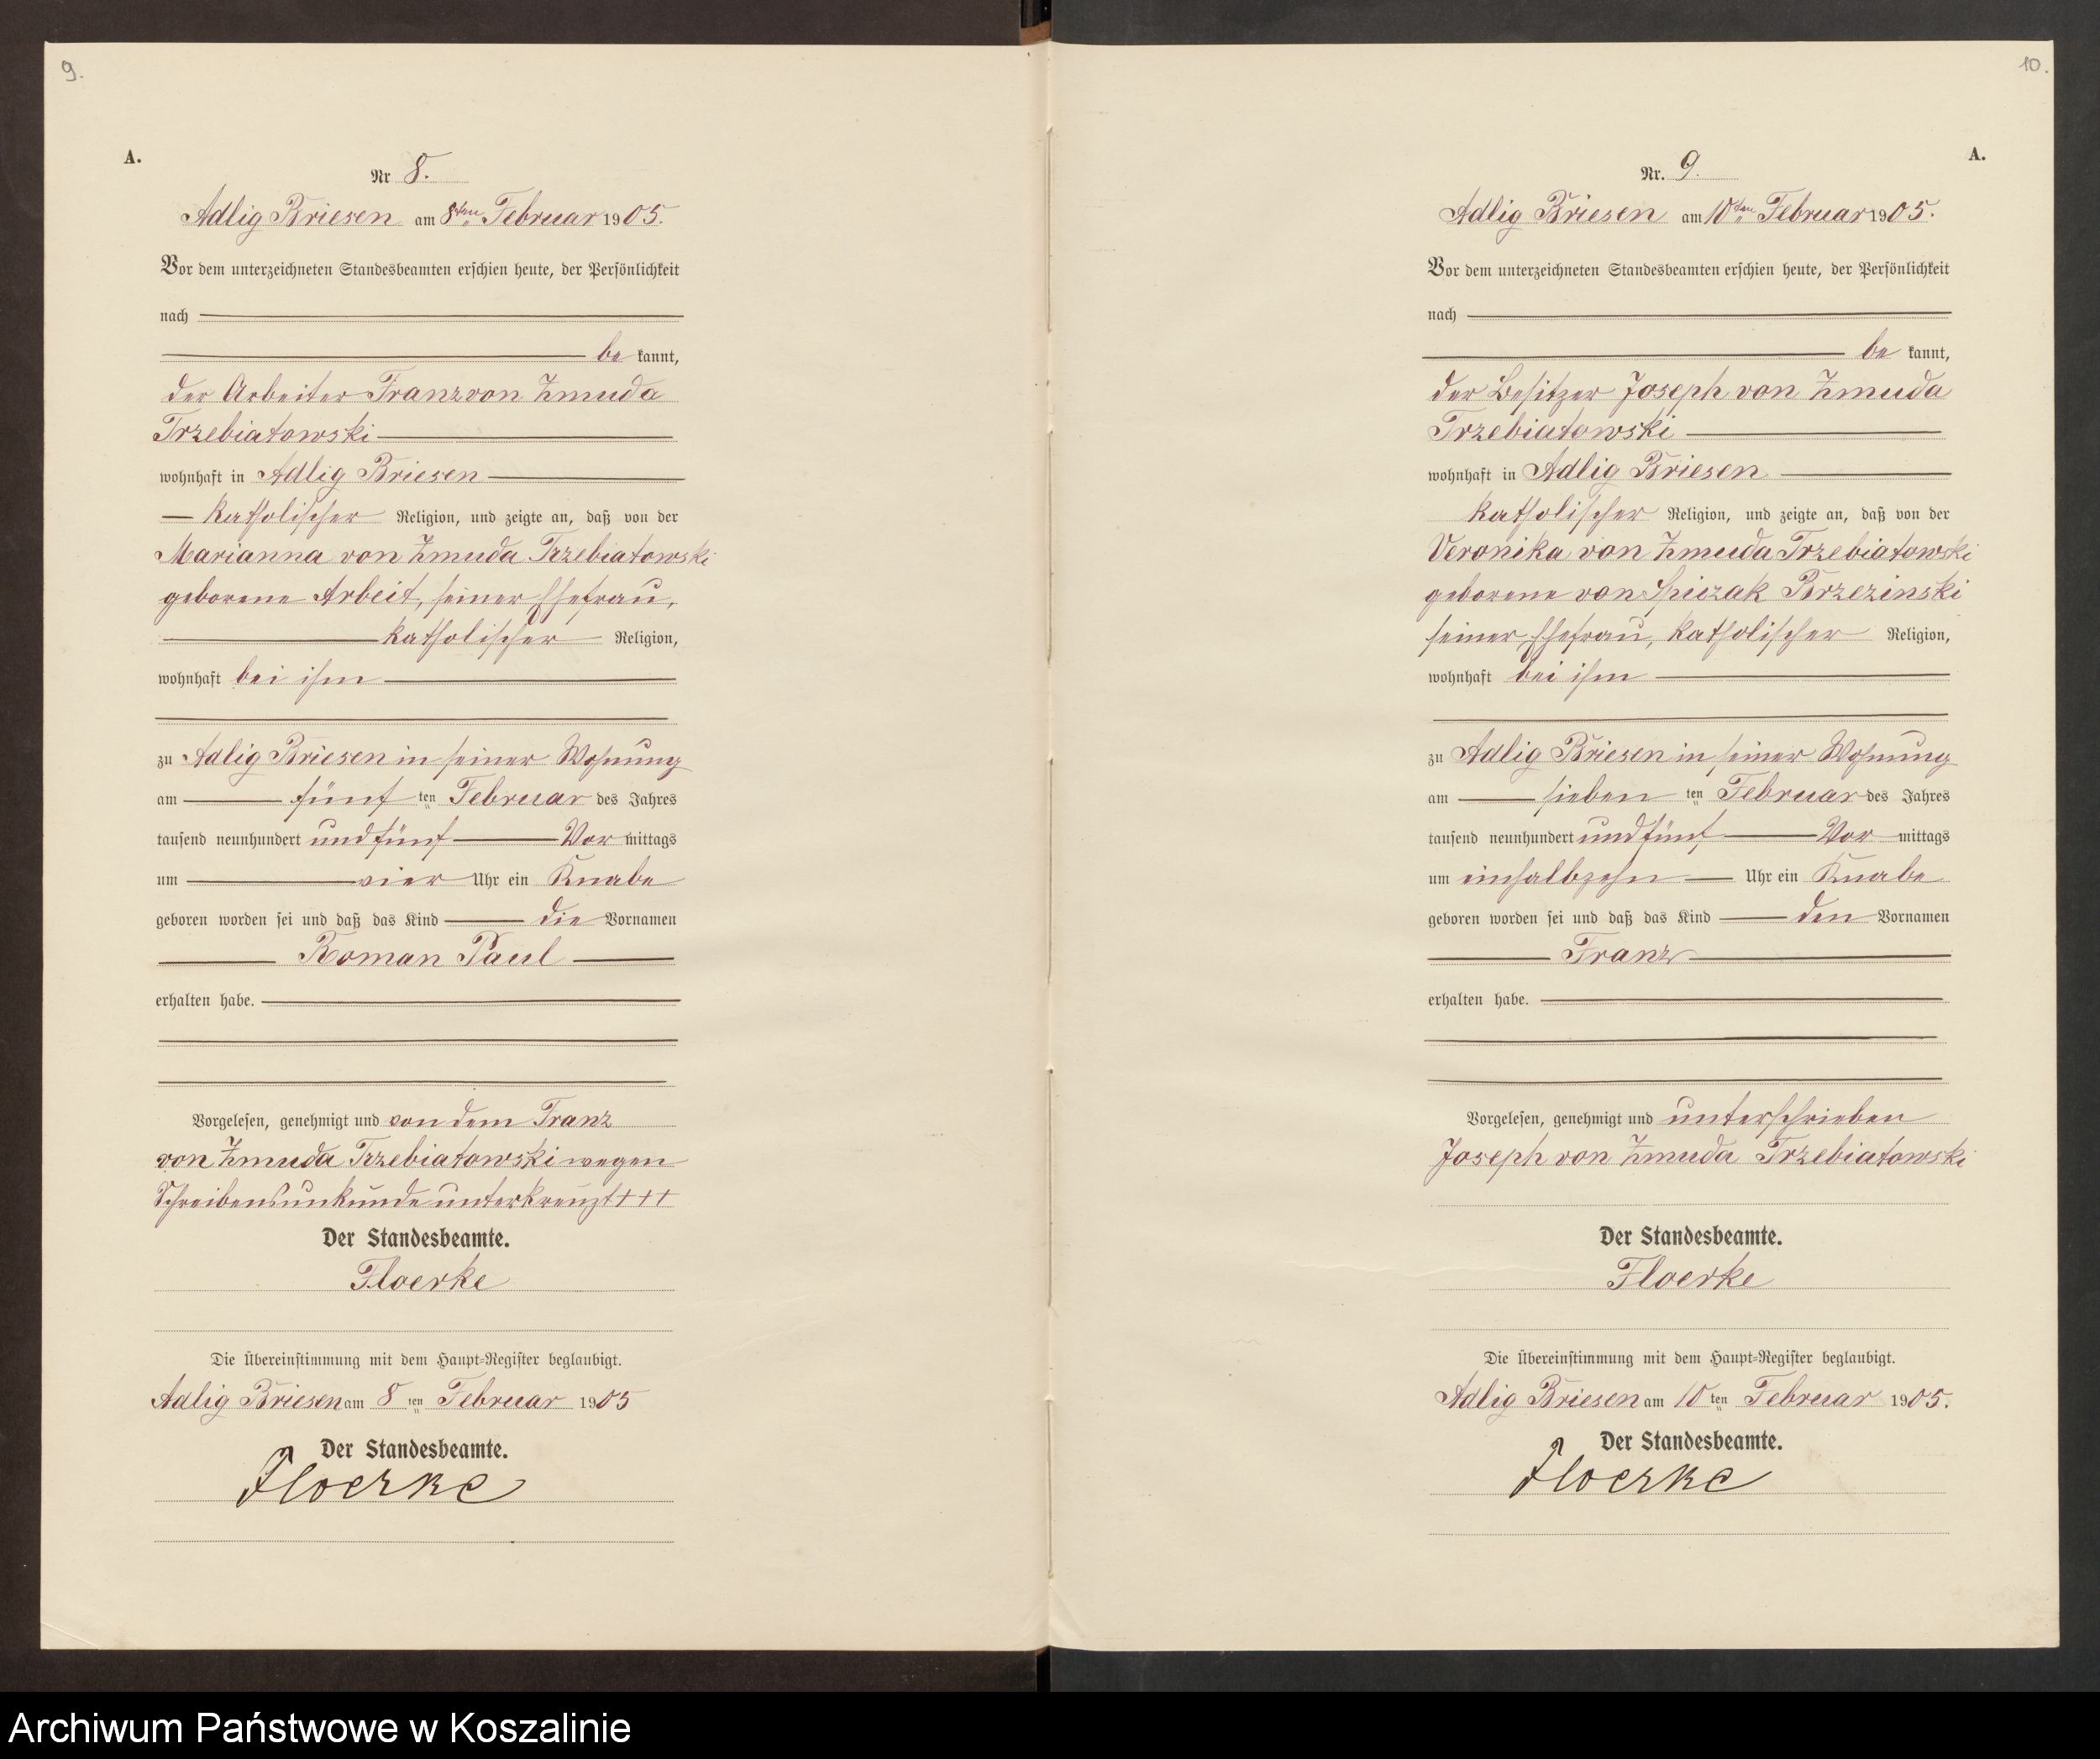 9.
A.
Nr 8.
Adlig Briesen am 8ten Februar 1905.
Vor dem unterzeichneten Standesbeamten erschien heute, der Persönlichkeit
nach
be kannt,
der Arbeiter Franz von Zmuda
Trzebiatowski
wohnhaft in Adlig Briesen
katholischer Religion, und zeigte an, daß von der
Marianna von Zmuda Trzebiatowski
geborene Arbeit, seiner Ehefrau,
katholischer Religion,
wohnhaft bei ihm
zu Adlig Briesen in seiner Wohnung
am fünf ten Februar des Jahres
tausend neunhundert und fünf Vor mittags
um vier Uhr ein Knabe
geboren worden sei und daß das Kind die Vornamen
Roman Paul
erhalten habe.
Vorgelesen, genehmigt und von dem Franz
von Zmuda Trzebiatowski wegen
Schreibensunkunde unterkreuzt +++
Der Standesbeamte.
Floerke
Die Übereinstimmung mit dem Haupt-Register beglaubigt.
Adlig Briesen am 8 ten Februar 1905
Der Standesbeamte.
Floerke
10.
A.
Nr. 9.
Adlig Briesen am 10ten Februar 1905.
Vor dem unterzeichneten Standesbeamten erschien heute, der Persönlichkeit
nach
be kannt,
der Besitzer Joseph von Zmuda
Trzebiatowski
wohnhaft in Adlig Briesen
katholischer Religion, und zeigte an, daß von der
Veronika von Zmuda Trzebiatowski
geborene von Spiczak Brzezinski
seiner Ehefrau, katholischer Religion,
wohnhaft bei ihm
zu Adlig Briesen in seiner Wohnung
am sieben ten Februar des Jahres
tausend neunhundert und fünf Vor mittags
um einhalbzehn Uhr ein Knabe
geboren worden sei und daß das Kind den Vornamen
Franz
erhalten habe.
Vorgelesen, genehmigt und unterschrieben
Joseph von Zmuda Trzebiatowski
Der Standesbeamte.
Floerke
Die Übereinstimmung mit dem Haupt-Register beglaubigt.
Adlig Briesen am 10 ten Februar 1905.
Der Standesbeamte.
Floerke
Archiwum Państwowe w Koszalinie